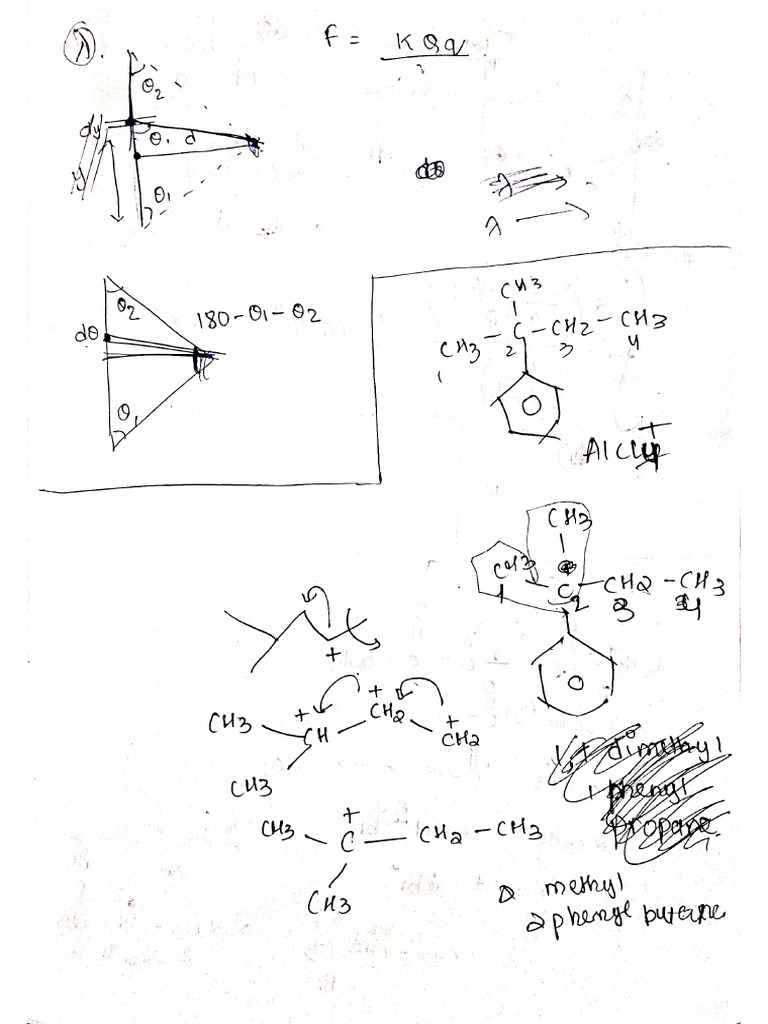 λ.
F = KQq
θ2
dy
θ1 d
y
θ1
λ
λ
θ2
180-θ1-θ2
dθ
θ1
CH3
CH3 - C - CH2 - CH3
1 2 3 4
AlCl4
CH3
CH3 - C - CH2 - CH3
1 2 3 4
+
+ + +
CH3 CH CH2 CH2
CH3
+
CH3 - C - CH2 - CH3
CH3
1,1 dimethyl
1 phenyl
propane
2 methyl
2 phenyl butane